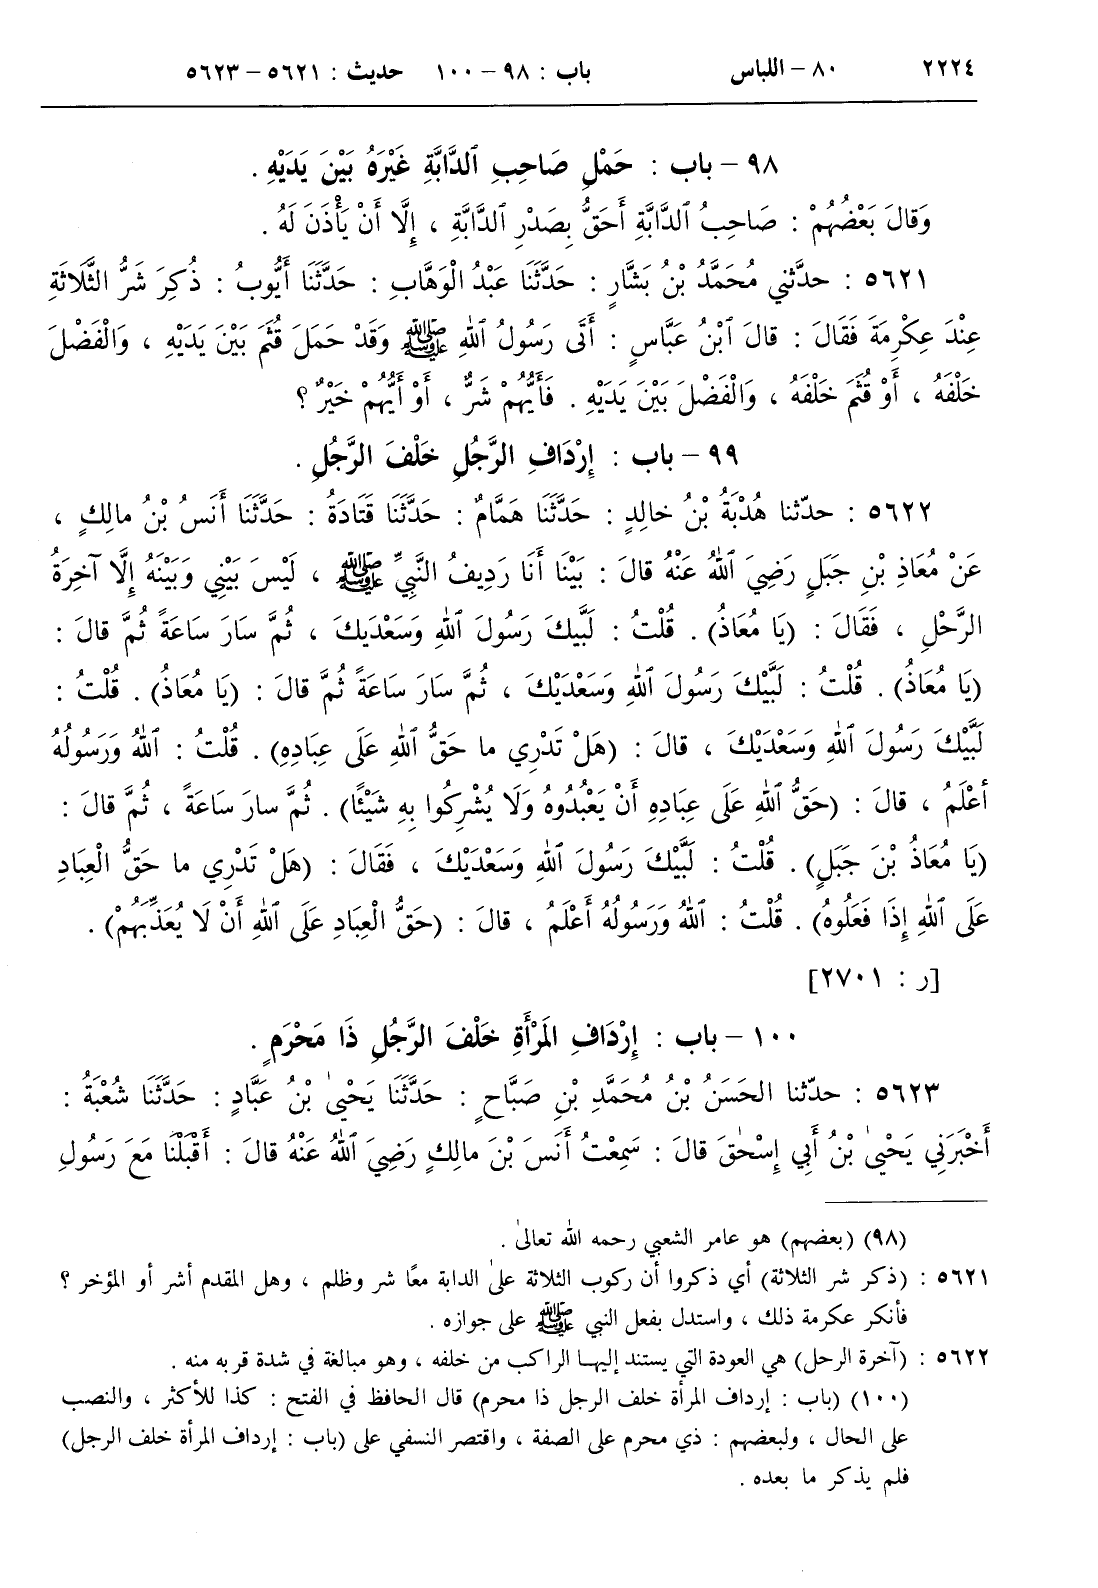 ٢٢٢٤ ٨٠ – اللباس باب : ٩٨ – ١٠٠ حديث : ٥٦٢١ – ٥٦٢٣
٩٨ – باب : حَمْلِ صَاحِبِ ٱلدَّابَّةِ غَيْرَهُ بَيْنَ يَدَيْهِ .
وَقالَ بَعْضُهُمْ : صَاحِبُ ٱلدَّابَّةِ أَحَقُّ بِصَدْرِ ٱلدَّابَّةِ ، إِلَّا أَنْ يَأْذَنَ لَهُ .
٥٦٢١ : حدَّثني مُحَمَّدُ بْنُ بَشَّارٍ : حَدَّثَنَا عَبْدُ الْوَهَّابِ : حَدَّثَنَا أَيُّوبُ : ذُكِرَ شَرُّ الثَّلَاثَةِ
عِنْدَ عِكْرِمَةَ فَقَالَ : قالَ ٱبْنُ عَبَّاسٍ : أَتَى رَسُولُ ٱللهِ ﷺ وَقَدْ حَمَلَ قُثَمَ بَيْنَ يَدَيْهِ ، وَالْفَضْلَ
خَلْفَهُ ، أَوْ قُثَمَ خَلْفَهُ ، وَالْفَضْلَ بَيْنَ يَدَيْهِ . فَأَيُّهُمْ شَرٌّ ، أَوْ أَيُّهُمْ خَيْرٌ ؟
٩٩ – باب : إِرْدَافِ الرَّجُلِ خَلْفَ الرَّجُلِ .
٥٦٢٢ : حدّثنا هُدْبَةُ بْنُ خالِدٍ : حَدَّثَنَا هَمَّامٌ : حَدَّثَنَا قَتَادَةُ : حَدَّثَنَا أَنَسُ بْنُ مالِكٍ ،
عَنْ مُعَاذِ بْنِ جَبَلٍ رَضِيَ ٱللهُ عَنْهُ قالَ : بَيْنَا أَنَا رَدِيفُ النَّبِيِّ ﷺ ، لَيْسَ بَيْنِي وَبَيْنَهُ إِلَّا آخِرَةُ
الرَّحْلِ ، فَقَالَ : (يَا مُعَاذُ) . قُلْتُ : لَبَّيكَ رَسُولَ ٱللهِ وَسَعْدَيكَ ، ثُمَّ سَارَ سَاعَةً ثُمَّ قالَ :
(يَا مُعَاذُ) . قُلْتُ : لَبَّيْكَ رَسُولَ ٱللهِ وَسَعْدَيْكَ ، ثُمَّ سَارَ سَاعَةً ثُمَّ قالَ : (يَا مُعَاذُ) . قُلْتُ :
لَبَّيْكَ رَسُولَ ٱللهِ وَسَعْدَيْكَ ، قالَ : (هَلْ تَدْرِي ما حَقُّ ٱللهِ عَلَى عِبَادِهِ) . قُلْتُ : ٱللهُ وَرَسُولُهُ
أَعْلَمُ ، قالَ : (حَقُّ ٱللهِ عَلَى عِبَادِهِ أَنْ يَعْبُدُوهُ وَلَا يُشْرِكُوا بِهِ شَيْئًا) . ثُمَّ سارَ سَاعَةً ، ثُمَّ قالَ :
(يَا مُعَاذُ بْنَ جَبَلٍ) . قُلْتُ : لَبَّيْكَ رَسُولَ ٱللهِ وَسَعْدَيْكَ ، فَقَالَ : (هَلْ تَدْرِي ما حَقُّ الْعِبَادِ
عَلَى ٱللهِ إِذَا فَعَلُوهُ) . قُلْتُ : ٱللهُ وَرَسُولُهُ أَعْلَمُ ، قالَ : (حَقُّ الْعِبَادِ عَلَى ٱللهِ أَنْ لَا يُعَذِّبَهُمْ) .
[ر : ٢٧٠١]
١٠٠ – باب : إِرْدَافِ المَرْأَةِ خَلْفَ الرَّجُلِ ذَا مَحْرَمٍ .
٥٦٢٣ : حدّثنا الحَسَنُ بْنُ مُحَمَّدِ بْنِ صَبَّاحٍ : حَدَّثَنَا يَحْيىٰ بْنُ عَبَّادٍ : حَدَّثَنَا شُعْبَةُ :
أَخْبَرَنِي يَحْيىٰ بْنُ أَبِي إِسْحٰقَ قالَ : سَمِعْتُ أَنَسَ بْنَ مالِكٍ رَضِيَ ٱللهُ عَنْهُ قالَ : أَقْبَلْنَا مَعَ رَسُولِ
(٩٨) (بعضهم) هو عامر الشعبي رحمه الله تعالىٰ .
٥٦٢١ : (ذكر شر الثلاثة) أي ذكروا أن ركوب الثلاثة علىٰ الدابة معًا شر وظلم ، وهل المقدم أشر أو المؤخر ؟
فأنكر عكرمة ذلك ، واستدل بفعل النبي ﷺ على جوازه .
٥٦٢٢ : (آخرة الرحل) هي العودة التي يستند إليها الراكب من خلفه ، وهو مبالغة في شدة قربه منه .
(١٠٠) (باب : إرداف المرأة خلف الرجل ذا محرم) قال الحافظ في الفتح : كذا للأكثر ، والنصب
على الحال ، ولبعضهم : ذي محرم على الصفة ، واقتصر النسفي على (باب : إرداف المرأة خلف الرجل)
فلم يذكر ما بعده .